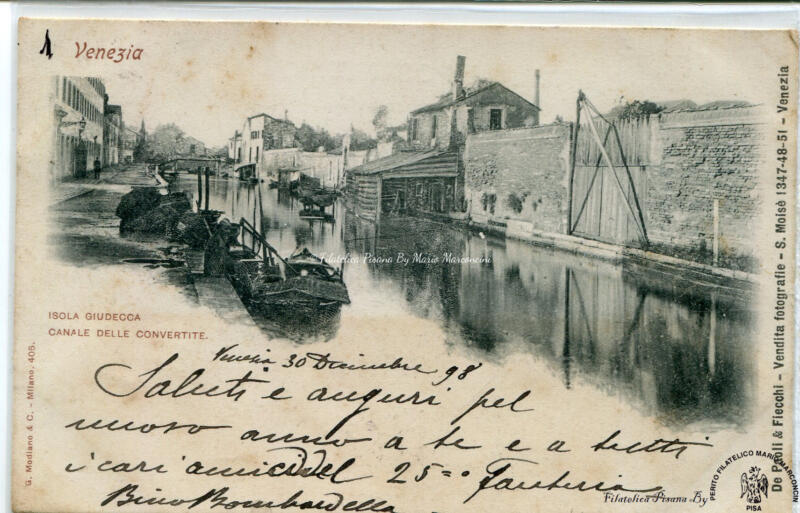 1
Venezia
Filatelica Pisana By Mario Marconcini
ISOLA GIUDECCA
CANALE DELLE CONVERTITE.
Venezia 30 Dicembre 98
Saluti e auguri pel
nuovo anno a te e a tutti
i cari amici del 25=o Fanteria
Bino Bombardella
G. Modiano & C. - Milano. 405.
De Paoli & Fiecchi - Vendita fotografie - S. Moisè 1347-48-51 - Venezia
Filatelica Pisana By
PERITO FILATELICO MARIO MARCONCINI
PISA